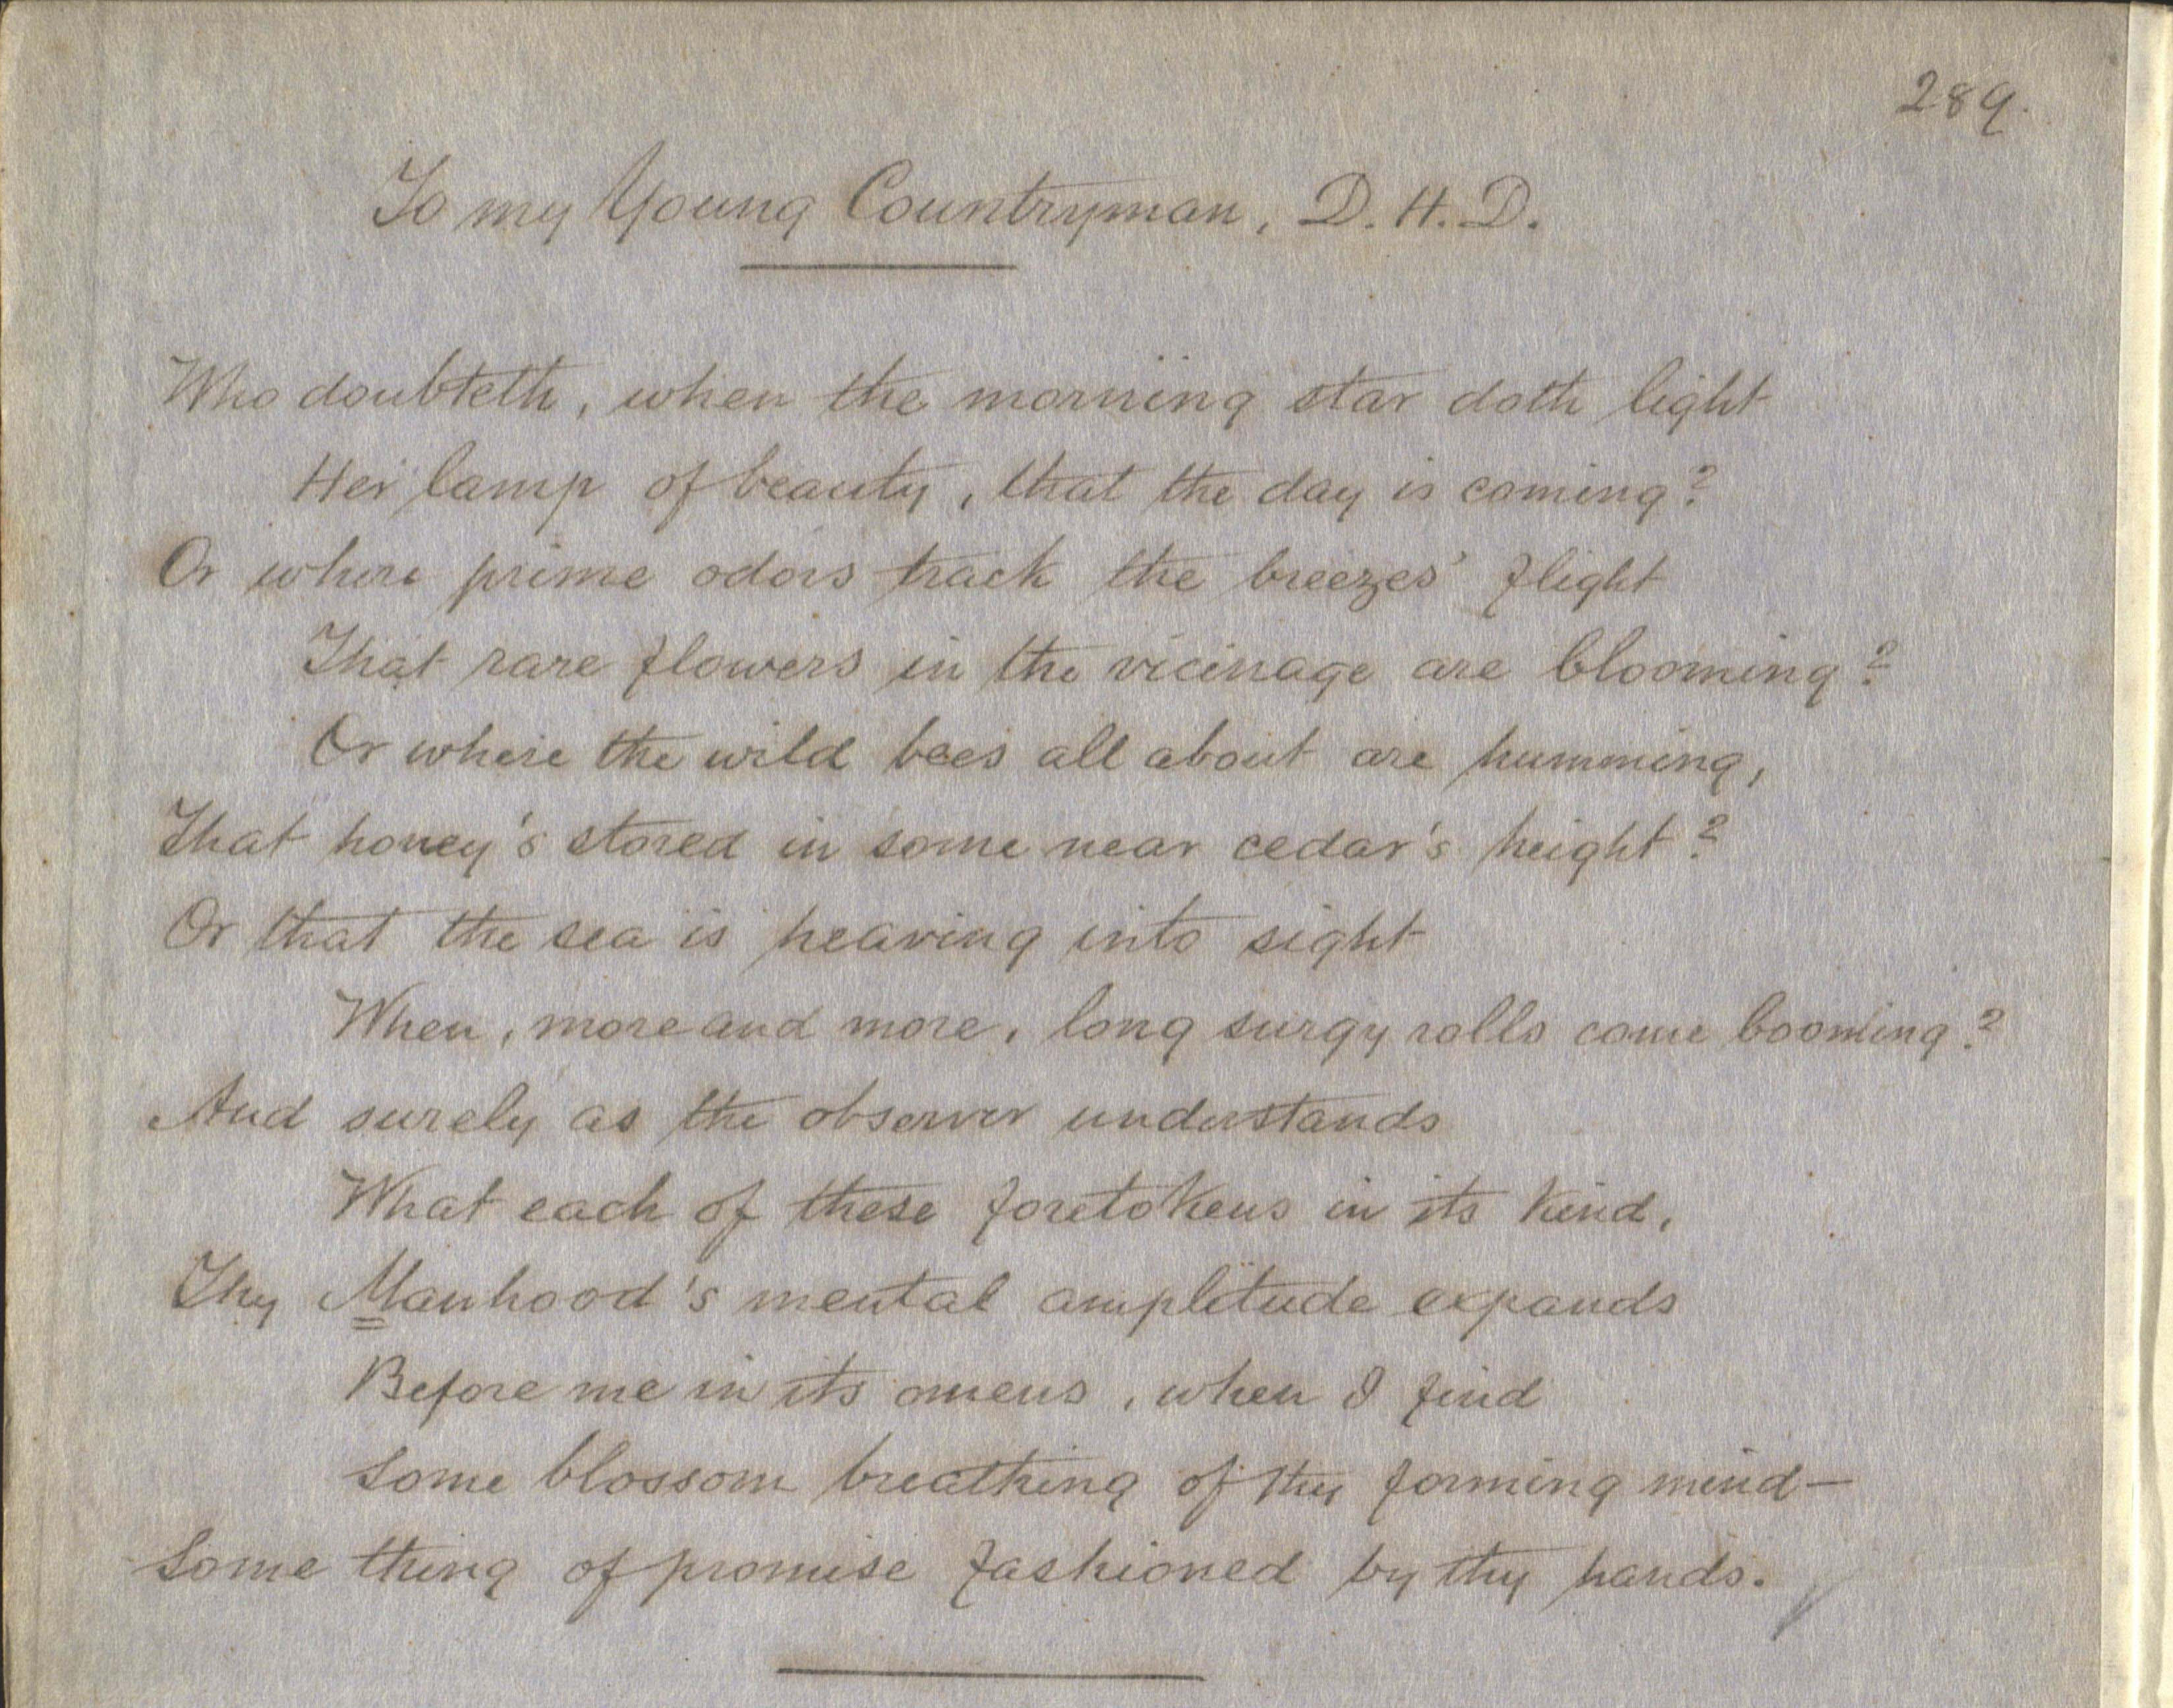 289.
To my Young Countryman, D. H. D.
Who doubteth, when the morning star doth light
Her lamp of beauty, that the day is coming?
Or where prime odors track the breezes' flight
That rare flowers in the vicinage are blooming?
Or where the wild bees all about are humming,
That honey's stored in some near cedar's height?
Or that the sea is heaving into sight
When, more and more, long surgy rolls come booming?
And surely as the observer understands
What each of these foretokens in its kind,
Thy Manhood's mental amplitude expands
Before me in its omens, when I find
Some blossom breathing of thy forming mind—
Some thing of promise fashioned by thy hands.